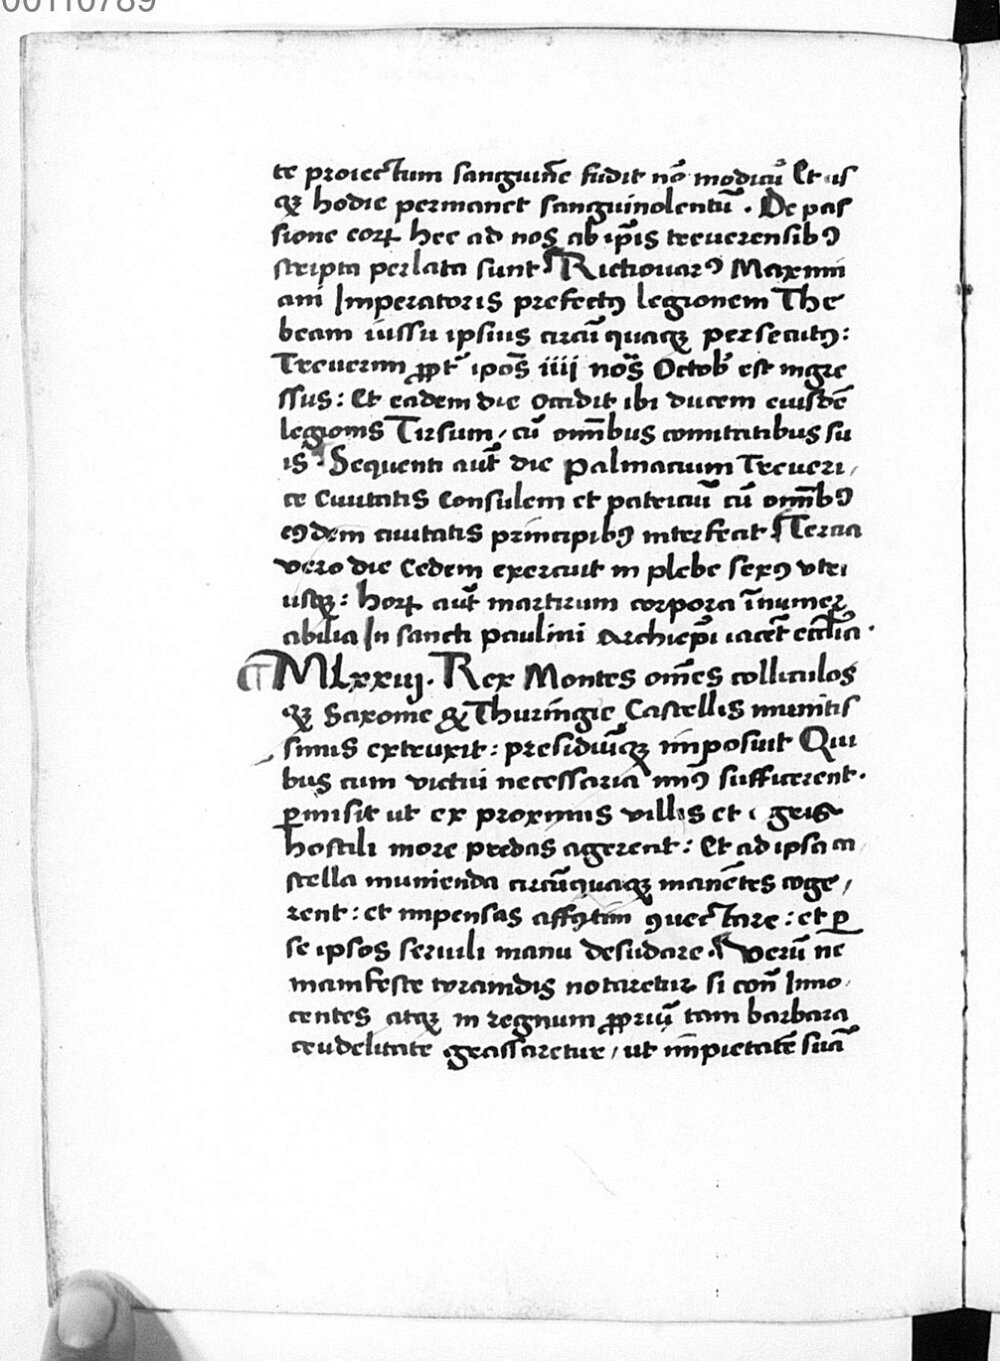 00110789
te proiectum sanguine᷎ fudit nō modicū Et us
qꝫ hodie permanet sanguinolentū. De pas
sione eoꝝ hec ad nos ab ip̄is treuerensibꝰ
scripta perlata sunt Rictiouarꝰ Maximi
ani Imperatoris prefectꝰ legionem The
beam iussu ipsius circū quaqꝫ persecutꝰ:
Treuerim ꝓpt̄ ip̄os iiii nōs Octob̄ est ingre
ssus: Et eadem die occidit ibi ducem eiusdē
legionis Tirsum, cū om̄ibus comitatibus su
is. Sequenti aut̄ die palmatium Treueri,
ce Ciuitatis Consulem et patriciū cū om̄ibꝰ
eꝰdem ciuitatis principibꝰ interfecit Tercia
vero die Cedem exercuit in plebe sexꝰ vtri
usqꝫ: hoꝝ aut̄ martirum corpora īnumer
abilia In sancti paulini Archiep̄i iacēt ecclīa.
MLxxiij. Rex Montes om̄es colliculos
qꝫ Saxonie & Thuringie Castellis munitis
simis extruxit: presidiūqꝫ imposuit Qui
bus cum victui necessaria minꝰ sufficerent.
ꝑmisit ut ex proximis villis et agris
hostili more predas agerent: Et ad ipsa ca,
stella munienda circūquaqꝫ manētes coge,
rent: et impensas affatim ꝯuectare: et ꝑ
se ipsos seruili manu desudare. Verū ne
manifeste tyrannidis notaretur si con̄ Inno,
centes atqꝫ in regnum ꝓpriū tam barbara
crudelitate grassaretur, ut impietatē suā